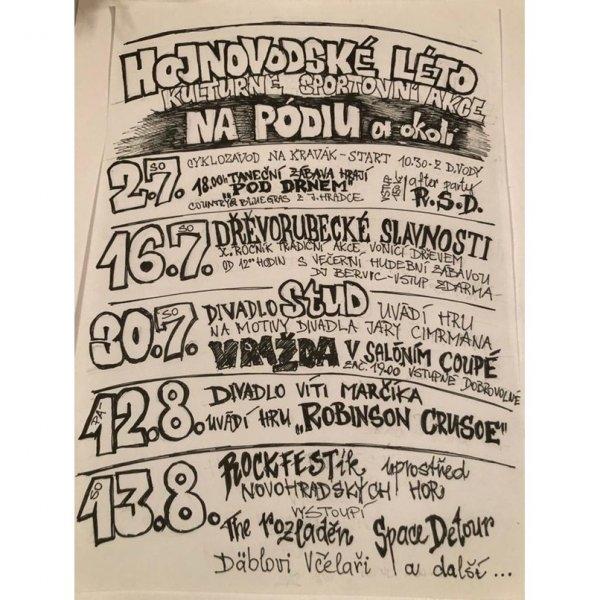 HOJNOVODSKÉ LÉTO
KULTURNĚ SPORTOVNÍ AKCE
NA PÓDIU a okolí
SO 2.7. CYKLOZÁVOD NA KRAVÁK - START 10.30 - Z D. VODY
18.00h TANEČNÍ ZÁBAVA HRAJÍ
"POD DRNEM" after party
COUNTRY & BLUEGRAS Z J. HRADCE R.S.D.
SO 16.7. DŘEVORUBECKÉ SLAVNOSTI
X. ROČNÍK TRADIČNÍ AKCE VONÍCÍ DŘEVEM
OD 12ºº HODIN S VEČERNÍ HUDEBNÍ ZÁBAVOU
DJ BERVIC - VSTUP ZDARMA -
SO 30.7. DIVADLO STUD UVÁDÍ HRU
NA MOTIVY DIVADLA JÁRY CIMRMANA
VRAŽDA V SALÓNÍM COUPÉ
ZAČ. 19.00 VSTUPNÉ DOBROVOLNÉ
PÁ- 12.8. DIVADLO VÍTI MARČÍKA
UVÁDÍ HRU „ROBINSON CRUSOE"
SO 13.8. ROCKFESTík uprostřed
NOVOHRADSKÝCH HOR
VYSTOUPÍ
The rozladěn Space Detour
Däblovi Včelaři a další ...